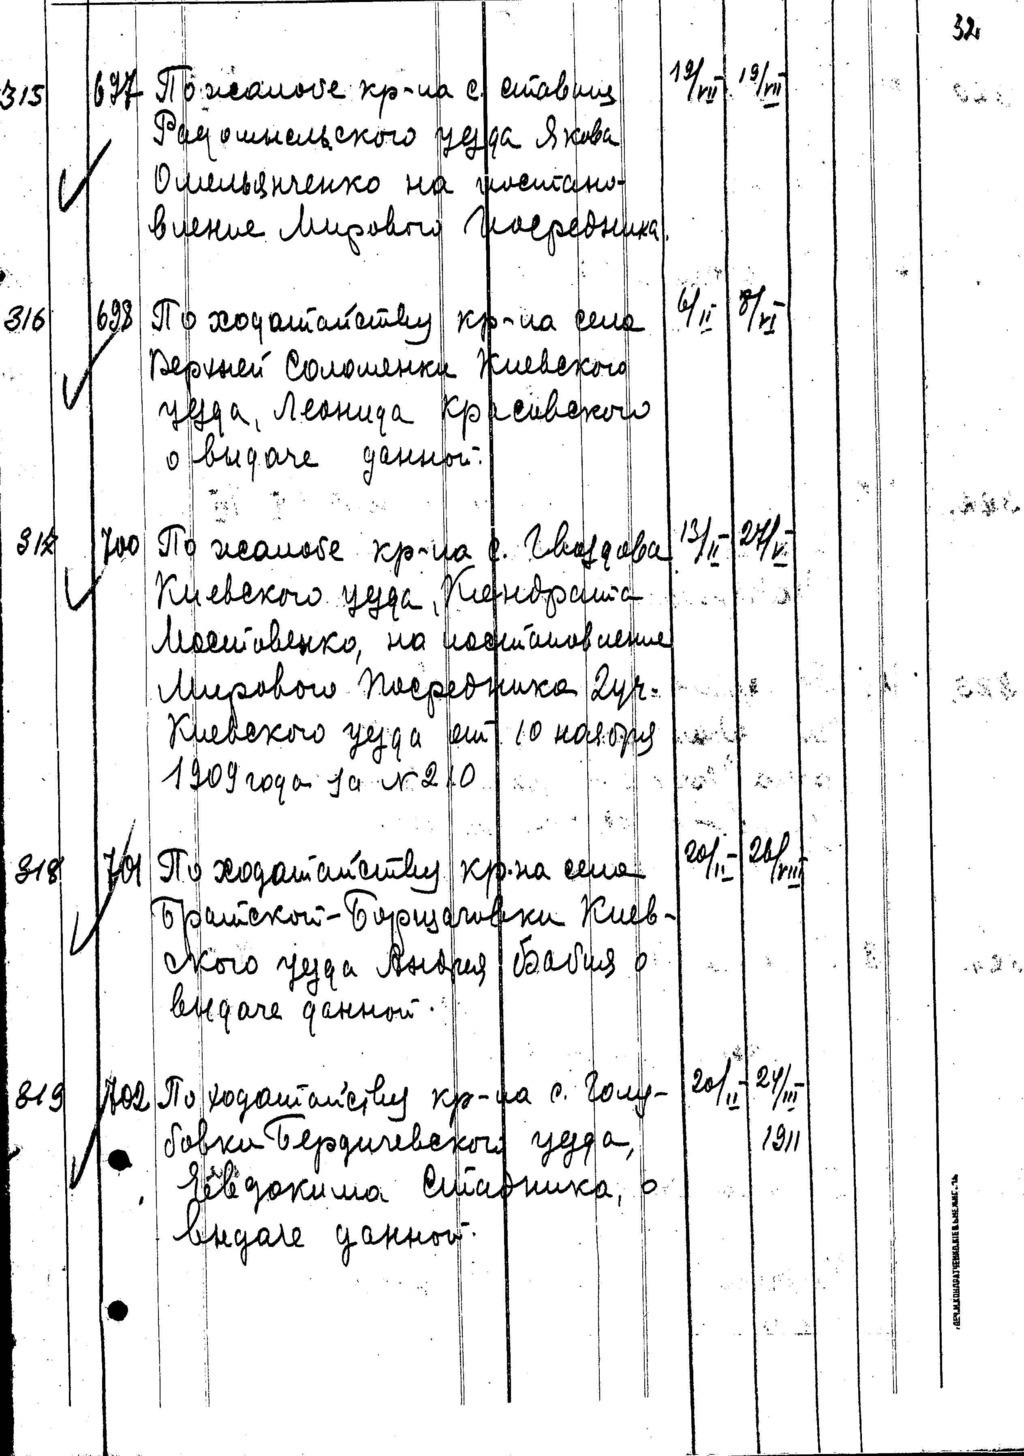 32
315 697 По жалобе кр-на с. Ставищ 19/VII 19/VII
Радомысльского уезда Якова
Омельянченко на постано-
вление Мирового Посредника.
316 698 По ходатайству кр-на села 6/II 8/VI
Верхней Соломенки Киевского
уезда, Леонида Красивского
о выдаче данной.
317 700 По жалобе кр-на с. Гвоздова 13/II 27/V
Киевского уезда, Кондрата
Мостовенко, на постановление
Мирового Посредника 2 уч.
Киевского уезда от 10 ноября
1909 года за № 210
318 701 По ходатайству кр-на села 20/II 26/VIII
Братской-Борщаговки Киев-
ского уезда Андрея Бабия о
выдаче данной.
319 702 По ходатайству кр-на с. Голу- 20/II 24/III
бовки Бердичевского уезда, 1911
Явдокима Стадника, о
выдаче данной.